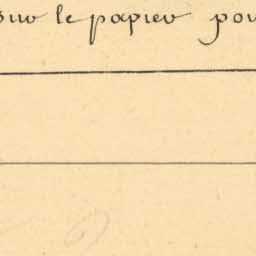 sur le papier pou